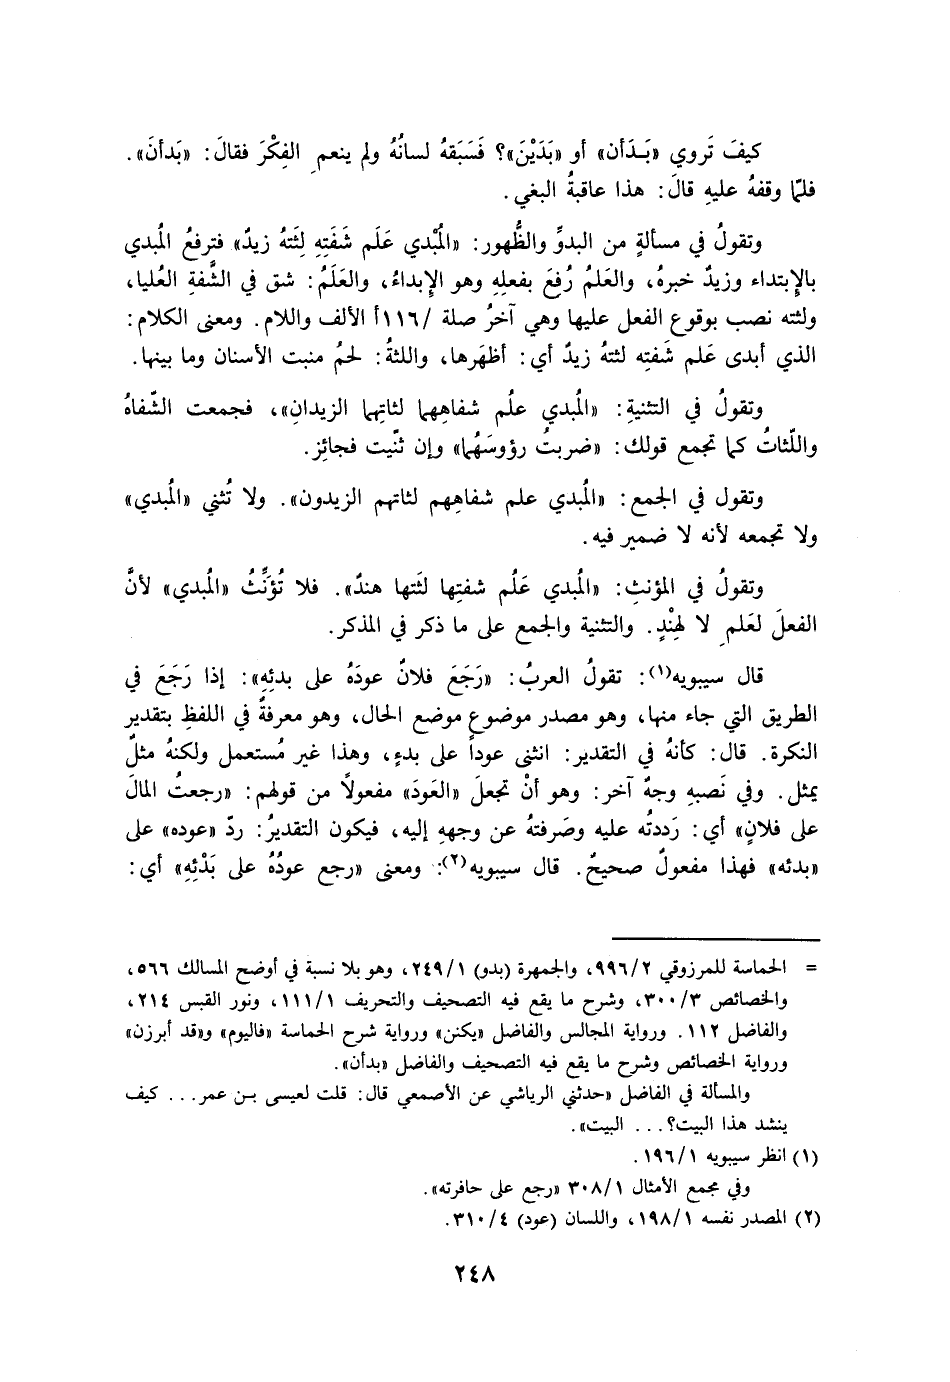 كيفَ تَروي «بَـدَأن» أو «بَدَيْنَ»؟ فَسَبَقهُ لسانُهُ ولم ينعمِ الفِكْرَ فقالَ: «بَدأنَ».
فلمّا وقفهُ عليهِ قالَ: هذا عاقبةُ البغي.
وتقولُ في مسألةٍ من البدوِّ والظُّهور: «المُبْدي عَلَم شَفَتِهِ لِثَتهُ زيدٌ» فترفعُ المُبدي
بالإبتداء وزيدٌ خبرهُ، والعَلمُ رُفعَ بفعلِهِ وهو الإبداءُ، والعَلَمُ: شق في الشَّفةِ العُليا،
ولثته نصب بوقوع الفعل عليها وهي آخرُ صلة /١١٦أ الألف واللام. ومعنى الكلام:
الذي أبدى عَلم شَفتِه لثتهُ زيدٌ أي: أظهَرها، واللثةُ: لحمُ منبت الأسنان وما بينها.
وتقولُ في التثنيةِ: «المُبدي علُم شفاهِهما لثاتِهما الزيدانِ»، فجمعت الشّفاهُ
واللّثاتُ كما تجمع قولك: «ضربتُ رؤوسَهُما» وإن ثنّيت فجائِز.
وتقول في الجمع: «المُبدي علم شفاهِهم لثاتهم الزيدون». ولا تُثني «المُبدي»
ولا تجمعه لأنه لا ضمير فيه.
وتقولُ في المؤنثِ: «المُبدي عَلُم شفتِها لثَتها هندٌ». فلا تُؤَنِّثُ «المُبدي» لأنَّ
الفعلَ لعَلمٍ لا لهِنْدٍ. والتثنية والجمع على ما ذكر في المذكر.
قال سيبويه(١): تقولُ العربُ: «رَجَعَ فلانٌ عودَهُ على بدئِهِ»: إذا رَجَعَ في
الطريق التي جاء منها، وهو مصدر موضوع موضع الحال، وهو معرفةٌ في اللفظِ بتقدير
النكرة. قال: كأنهُ في التقدير: انثنى عوداً على بدءٍ، وهذا غير مُستعمل ولكنهُ مثلٌ
يمثل. وفي نَصبهِ وجهٌ آخر: وهو أنْ تجعلَ «العَودَ» مفعولاً من قولهم: «رجعتُ المالَ
على فلانٍ» أي: رَددتُه عليه وصَرفتهُ عن وجههِ إليه، فيكون التقديرُ: ردّ «عوده» على
«بدئه» فهذا مفعولٌ صحيحٌ. قال سيبويه(٢): ومعنى «رجع عودُهُ على بَدْئِهِ» أي:
= الحماسة للمرزوقي ٩٩٦/٢، والجمهرة (بدو) ٢٤٩/١، وهو بلا نسبة في أوضح المسالك ٥٦٦،
والخصائص ٣٠٠/٣، وشرح ما يقع فيه التصحيف والتحريف ١١١/١، ونور القبس ٢١٤،
والفاضل ١١٢. ورواية المجالس والفاضل «يكنن» ورواية شرح الحماسة «فاليوم» و«قد أبرزن»
ورواية الخصائص وشرح ما يقع فيه التصحيف والفاضل «بدأن».
والمسألة في الفاضل «حدثني الرياشي عن الأصمعي قال: قلت لعيسى بـن عمر... كيف
ينشد هذا البيت؟... البيت».
(١) انظر سيبويه ١٩٦/١.
وفي مجمع الأمثال ٣٠٨/١ «رجع على حافرته».
(٢) المصدر نفسه ١٩٨/١، واللسان (عود) ٣١٠/٤.
٢٤٨